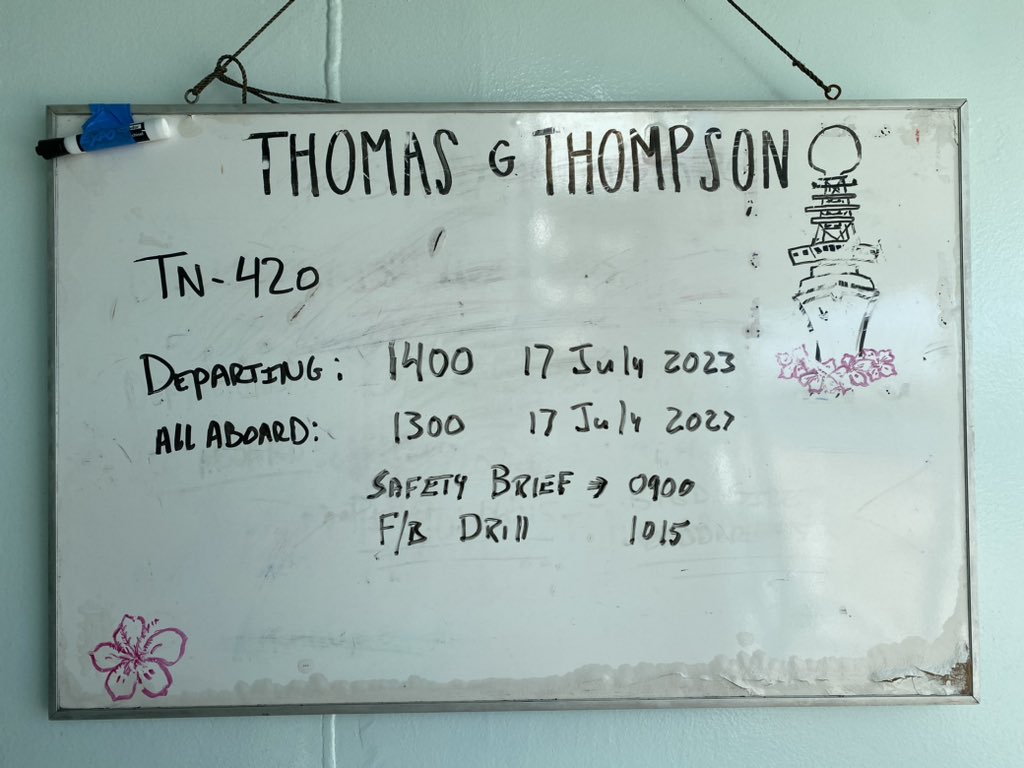 THOMAS G THOMPSON
TN-420
DEPARTING: 1400 17 July 2023
ALL ABOARD: 1300 17 July 2023
SAFETY BRIEF → 0900
F/B DRILL 1015